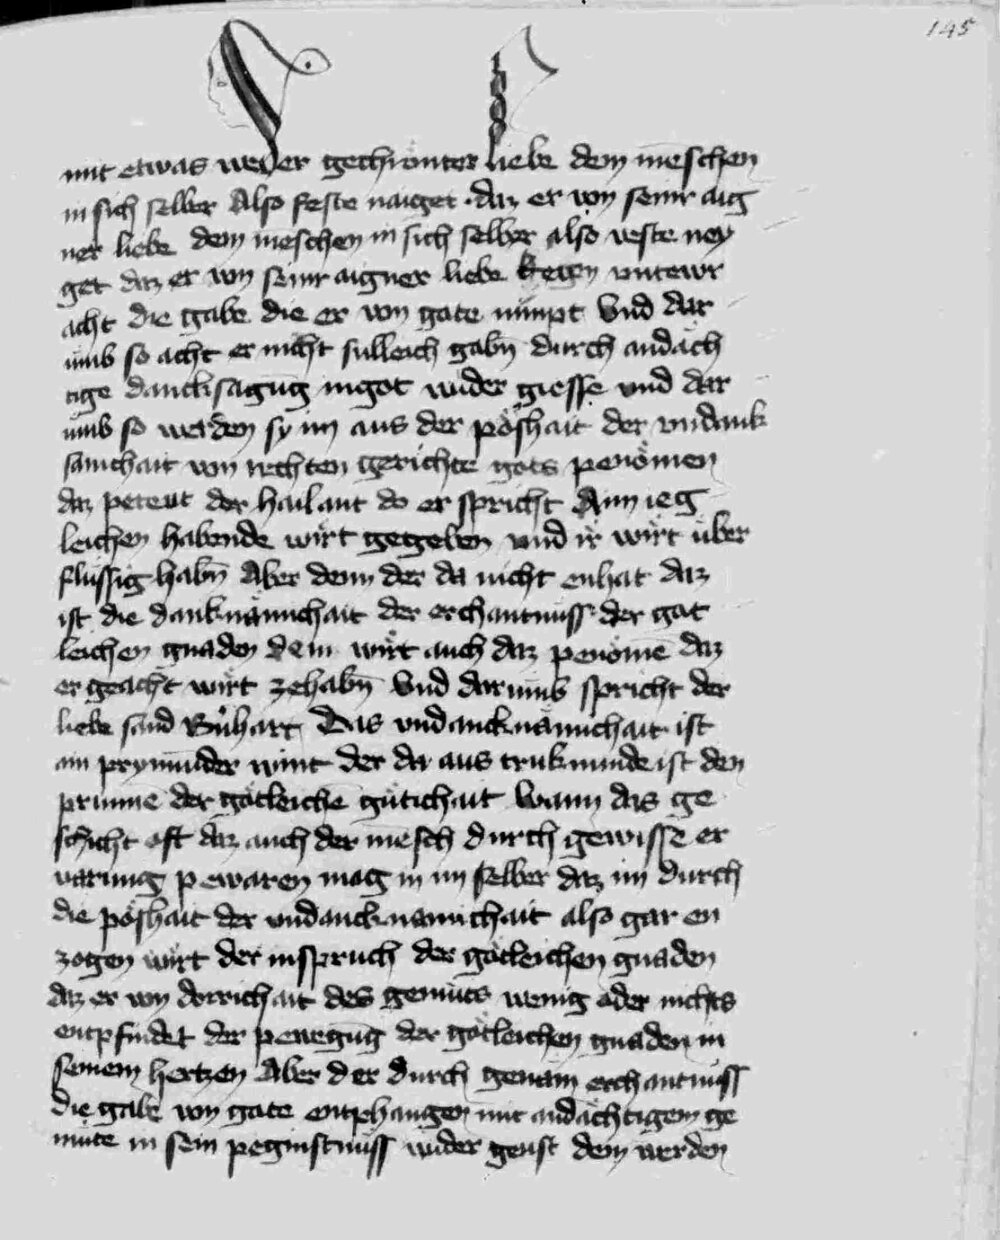 145
mit etwas weder gechrönter liebe dem meschen
in sich selber Also feste naiget · daz er von seinr aig
ner liebe dem meschen in sich selber also veste ney
get daz er von seinr aigner liebe wegen vntewr
acht die gabe die er von gote nimpt Vnd dar
umb so acht er nicht sulleich gabn̄ durch andäch
tige danchsagūg in got wider giesse vnd dar
umb so werden sy im aus der pöshait der vndank
samchait von rechten gerichte gots penömen
daz peteut der hailant do er spricht Aim ieg
leichen habende wirt gegeben vnd ir wirt über
flüssig habn̄ Aber dem der da nicht enhat daz
ist die danknämichait der erchantnüss der got
leichen gnaden dem wirt auch daz penömē daz
er geacht wirt zehabn̄ Vnd darumb spricht der
liebe sand Bn̄hart Das vndancknämichait ist
ain prymūder wint der da aus trukmunde ist den
prunnē der götleichē gütichait Wann das ge
schicht oft daz auch der mēsch durch gewissē er
varung pewaren mag in im selber daz im durch
die pöshait der vndancknämichait also gar en
zogen wirt der inspruch der götleichen gnaden
daz er von dorrichait des gemüts wenig oder nichts
entpfindet der pewegūg der götleichen gnaden in
seinem hertzen Aber der durch genäm erchantnüss
die gabe von gote entphangen mit andächtigem ge
müte in sein peginstnüss wider geust dem werden